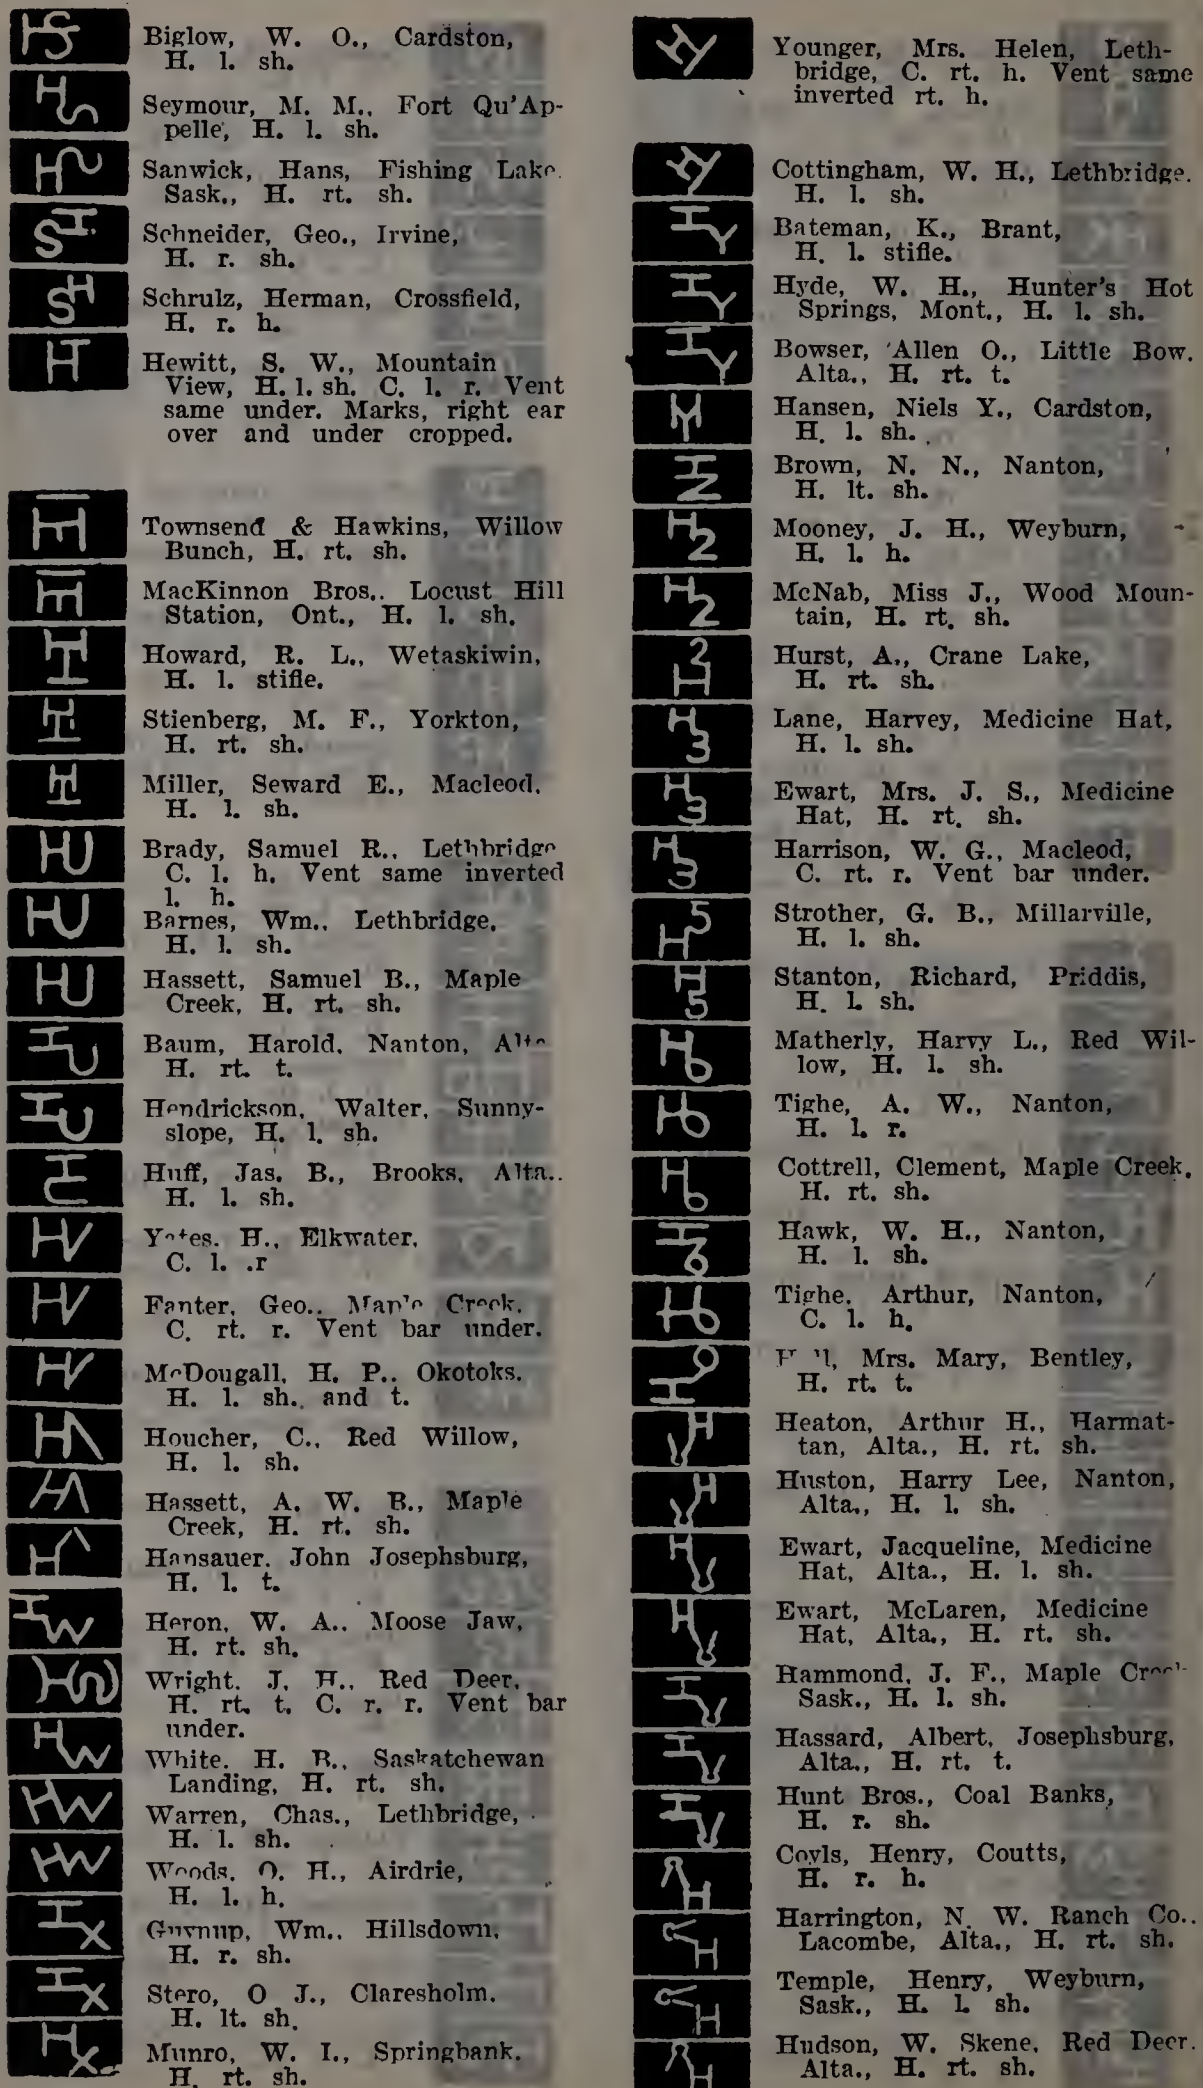 Biglow, W. O., Cardston,
H. l. sh.
Seymour, M. M., Fort Qu'Ap-
pelle, H. l. sh.
Sanwick, Hans, Fishing Lake.
Sask., H. rt. sh.
Schneider, Geo., Irvine,
H. r. sh.
Schrulz, Herman, Crossfield,
H. r. h.
Hewitt, S. W., Mountain
View, H. l. sh. C. l. r. Vent
same under. Marks, right ear
over and under cropped.
Townsend & Hawkins, Willow
Bunch, H. rt. sh.
MacKinnon Bros.. Locust Hill
Station, Ont., H. l. sh.
Howard, R. L., Wetaskiwin,
H. l. stifle.
Stienberg, M. F., Yorkton,
H. rt. sh.
Miller, Seward E., Macleod.
H. l. sh.
Brady, Samuel R., Lethbridge
C. l. h. Vent same inverted
l. h.
Barnes, Wm., Lethbridge,
H. l. sh.
Hassett, Samuel B., Maple
Creek, H. rt. sh.
Baum, Harold, Nanton, Alta
H. rt. t.
Hendrickson, Walter, Sunny-
slope, H. l. sh.
Huff, Jas. B., Brooks, Alta..
H. l. sh.
Yates. H., Elkwater,
C. l. .r
Fanter, Geo.. Maple Creek.
C. rt. r. Vent bar under.
McDougall, H. P.. Okotoks.
H. l. sh. and t.
Houcher, C., Red Willow,
H. l. sh.
Hassett, A. W. B., Maple
Creek, H. rt. sh.
Hansauer. John Josephsburg,
H. l. t.
Heron, W. A.. Moose Jaw,
H. rt. sh.
Wright. J. H., Red Deer,
H. rt. t. C. r. r. Vent bar
under.
White. H. B., Saskatchewan
Landing, H. rt. sh.
Warren, Chas., Lethbridge,
H. l. sh.
Woods, O. H., Airdrie,
H. l. h.
Wm.. Hillsdown,
H. r. sh.
Stero, O J., Claresholm.
H. lt. sh.
Munro, W. I., Springbank.
H. rt. sh.
Younger, Mrs. Helen, Leth-
bridge, C. rt. h. Vent same
inverted rt. h.
Cottingham, W. H., Lethbridge.
H. l. sh.
Bateman, K., Brant,
H. l. stifle.
Hyde, W. H., Hunter's Hot
Springs, Mont., H. l. sh.
Bowser, Allen O., Little Bow.
Alta., H. rt. t.
Hansen, Niels Y., Cardston,
H. l. sh.
Brown, N. N., Nanton,
H. lt. sh.
Mooney, J. H., Weyburn,
H. l. h.
McNab, Miss J., Wood Moun-
tain, H. rt. sh.
Hurst, A., Crane Lake,
H. rt. sh.
Lane, Harvey, Medicine Hat,
H. l. sh.
Ewart, Mrs. J. S., Medicine
Hat, H. rt. sh.
Harrison, W. G., Macleod,
C. rt. r. Vent bar under.
Strother, G. B., Millarville,
H. l. sh.
Stanton, Richard, Priddis,
H. l. sh.
Matherly, Harvy L., Red Wil-
low, H. l. sh.
Tighe, A. W., Nanton,
H. l. r.
Cottrell, Clement, Maple Creek,
H. rt. sh.
Hawk, W. H., Nanton,
H. l. sh.
Tighe. Arthur, Nanton,
C. l. h.
Mrs. Mary, Bentley,
H. rt. t.
Heaton, Arthur H., Harmat-
tan, Alta., H. rt. sh.
Huston, Harry Lee, Nanton,
Alta., H. l. sh.
Ewart, Jacqueline, Medicine
Hat, Alta., H. l. sh.
Ewart, McLaren, Medicine
Hat, Alta., H. rt. sh.
Hammond, J. F., Maple Creek
Sask., H. l. sh.
Hassard, Albert, Josephsburg,
Alta., H. rt. t.
Hunt Bros., Coal Banks,
H. r. sh.
Coyls, Henry, Coutts,
H. r. h.
Harrington, N. W. Ranch Co..
Lacombe, Alta., H. rt. sh.
Temple, Henry, Weyburn,
Sask., H. l. sh.
Hudson, W. Skene, Red Deer.
Alta., H. rt. sh.